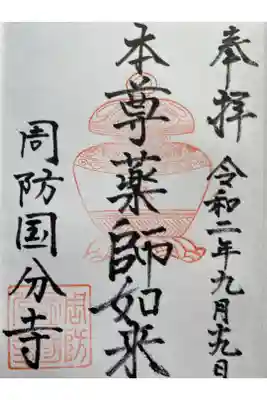 奉拝 令和二年九月十九日
本尊薬師如来
周防国分寺
周防